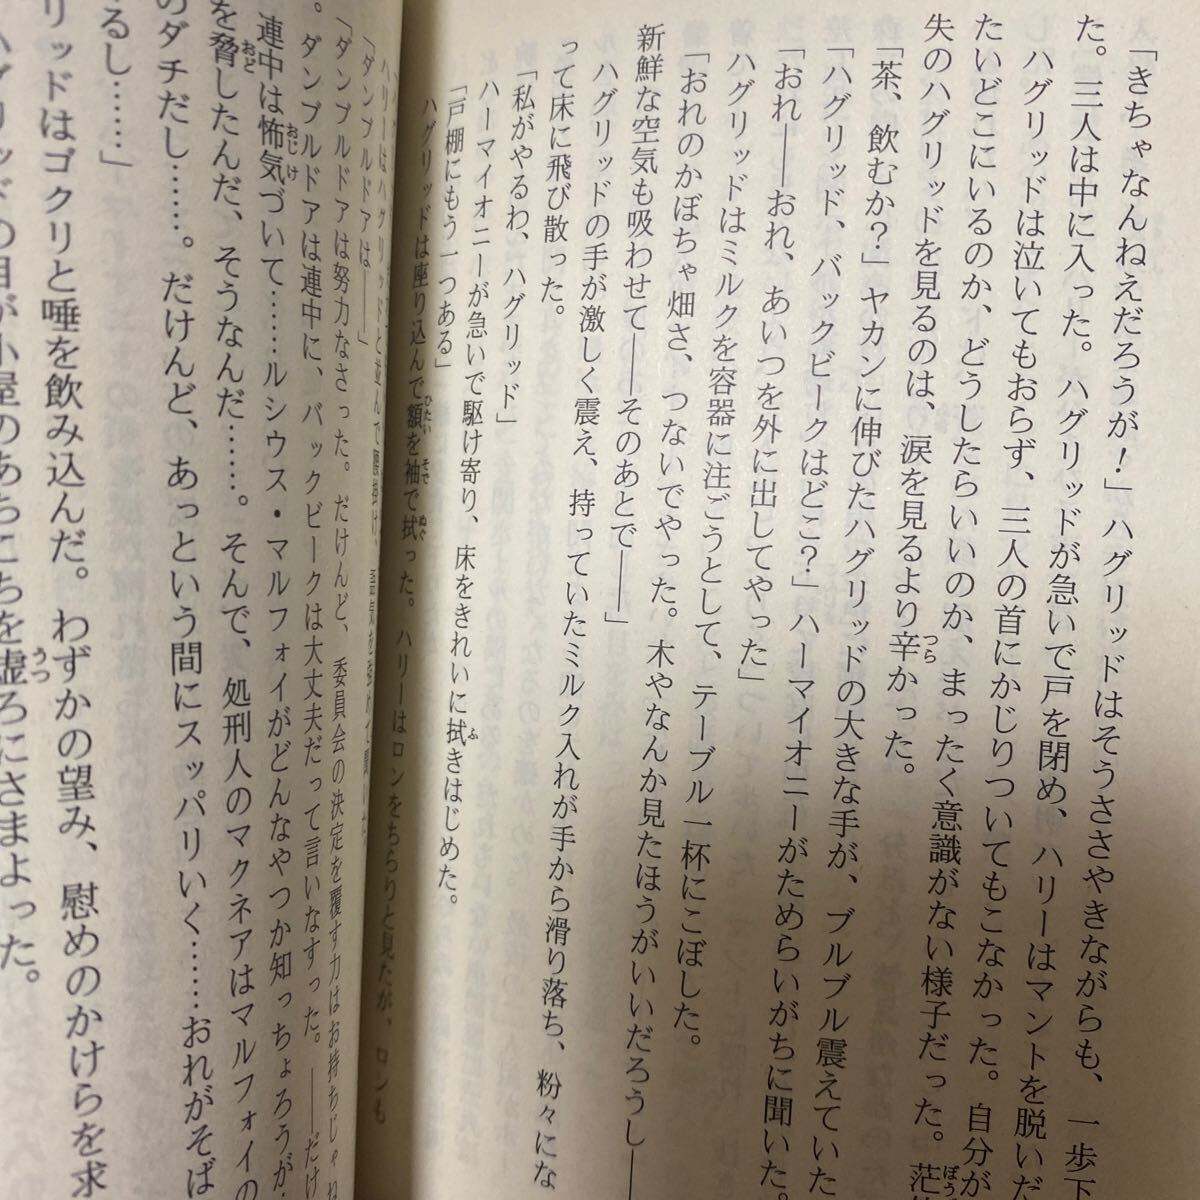 「きちゃなんねえだろうが！」ハグリッドはそうささやきながらも、一歩下
た。三人は中に入った。ハグリッドが急いで戸を閉め、ハリーはマントを脱いだ
ハグリッドは泣いてもおらず、三人の首にかじりついてもこなかった。自分が
たいどこにいるのか、どうしたらいいのか、まったく意識がない様子だった。茫
失のハグリッドを見るのは、涙を見るより辛かった。
「茶、飲むか？」ヤカンに伸びたハグリッドの大きな手が、ブルブル震えていた
「ハグリッド、バックビークはどこ？」ハーマイオニーがためらいがちに聞いた。
「おれ――おれ、あいつを外に出してやった」
ハグリッドはミルクを容器に注ごうとして、テーブル一杯にこぼした。
「おれのかぼちゃ畑さ、つないでやった。木やなんか見たほうがいいだろうし――
新鮮な空気も吸わせて――そのあとで――」
ハグリッドの手が激しく震え、持っていたミルク入れが手から滑り落ち、粉々にな
って床に飛び散った。
「私がやるわ、ハグリッド」
ハーマイオニーが急いで駆け寄り、床をきれいに拭きはじめた。
「戸棚にもう一つある」
ハグリッドは座り込んで額を袖で拭った。ハリーはロンをちらりと見たが、ロンも
「ダンブルドアは――」
「ダンブルドアは努力なさった。だけんど、委員会の決定を覆す力はお持ちじゃね
。ダンブルドアは連中に、バックビークは大丈夫だって言いなすった。――だけ
連中は怖気づいて……ルシウス・マルフォイがどんなやつか知っちょろうが
を脅したんだ、そうなんだ……。そんで、処刑人のマクネアはマルフォイの
のダチだし……。だけんど、あっという間にスッパリいく……おれがそば
るし……」
リッドはゴクリと唾を飲み込んだ。わずかの望み、慰めのかけらを求
ハグリッドの目が小屋のあちこちを虚ろにさまよった。